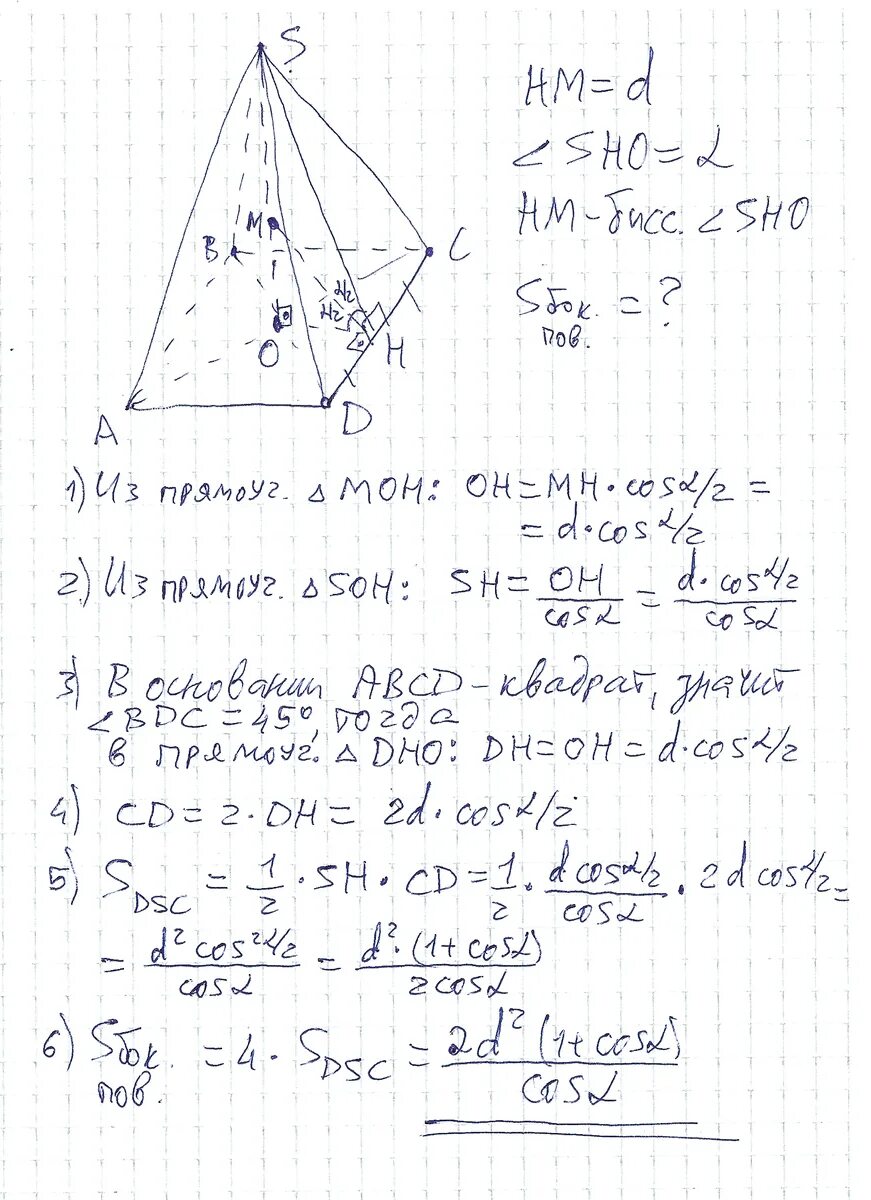 S
M
B
C
α/2
α/2
O
H
A
D
HM = d
∠SHO = α
HM - бисс. ∠SHO
Sбок. = ?
пов.
1) Из прямоуг. △ MOH: OH = MH · cos α/2 =
= d · cos α/2
2) Из прямоуг. △ SOH: SH = OH/cos α = d · cos α/2 / cos α
3) В основании ABCD - квадрат, значит
∠BDC = 45°, тогда
в прямоуг. △ DHO: DH = OH = d · cos α/2
4) CD = 2 · DH = 2d · cos α/2
5) S_DSC = 1/2 · SH · CD = 1/2 · d cos α/2 / cos α · 2d cos α/2 =
= d² cos² α/2 / cos α = d² · (1 + cos α) / 2 cos α
6) Sбок. = 4 · S_DSC = 2d² (1 + cos α) / cos α
пов.